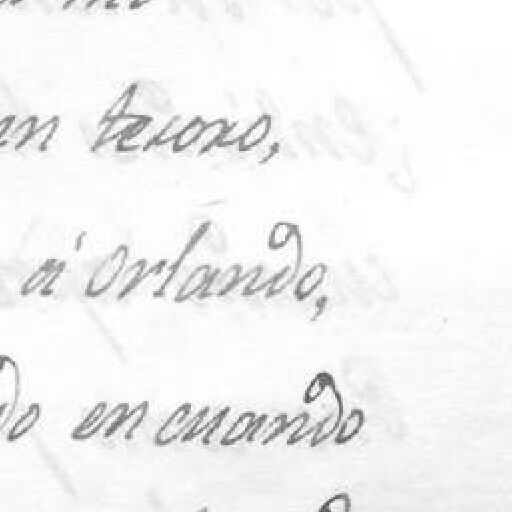 en tesoro,
á Orlando,
do en cuando